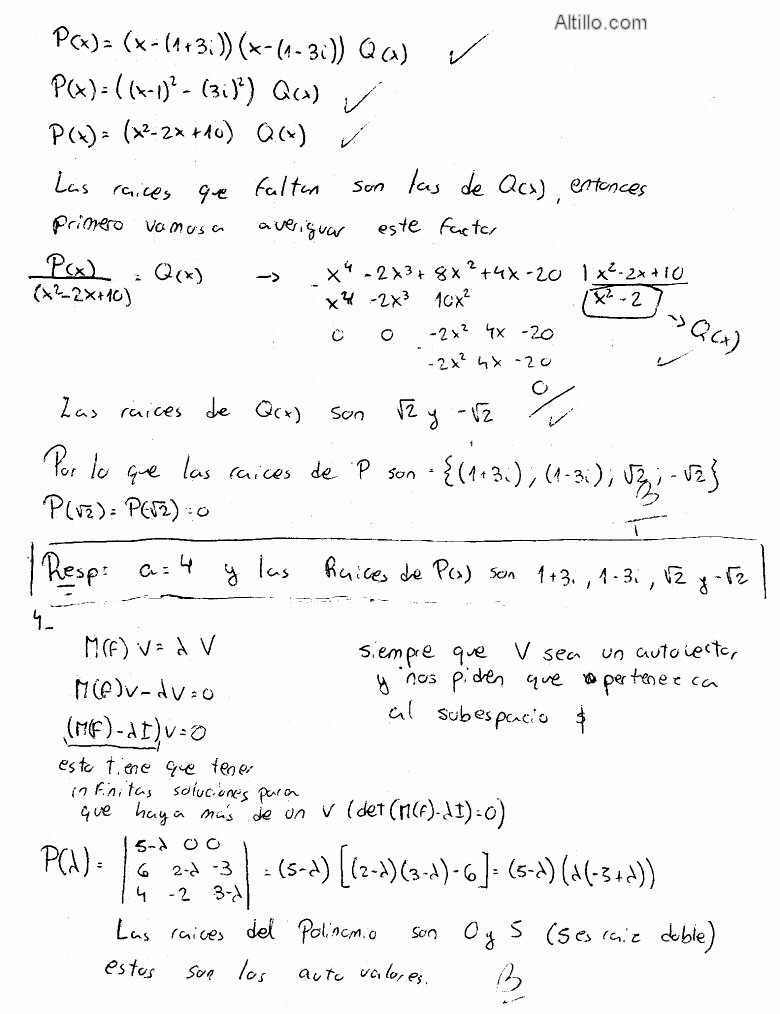 Altillo.com
P(x) = (x-(1+3i))(x-(1-3i)) Q(x) ✓
P(x) = ((x-1)² - (3i)²) Q(x) ✓
P(x) = (x²-2x+10) Q(x) ✓
Las raices que faltan son las de Q(x), entonces
primero vamos a averiguar este factor
P(x)/(x²-2x+10) = Q(x) → - x⁴ -2x³ + 8x² +4x -20 | x²-2x+10
x⁴ -2x³ 10x² x² - 2 → Q(x)
0 0 -2x² 4x -20
- -2x² 4x -20 ✓
0
Las raices de Q(x) son √2 y -√2 ✓
Por lo que las raices de P son = {(1+3i) ; (1-3i) ; √2 ; -√2}
P(√2) = P(√2) = 0
B
Resp: a = 4 y las Raices de P(x) son 1+3i, 1-3i, √2 y -√2
4_
M(f) v = λ v siempre que V sea un autovector
M(f)v - λv = 0 y nos piden que pertenezca
(M(f) - λI)v = 0 al subespacio $
esto tiene que tener
infinitas soluciones para
que haya más de un v (det(M(f)-λI)=0)
P(λ) = | 5-λ 0 0 |
| 6 2-λ -3 | = (5-λ) [(2-λ)(3-λ)-6] = (5-λ)(λ(-3+λ))
| 4 -2 3-λ |
Las raices del Polinomio son 0 y 5 (5 es raiz doble)
estos son los auto valores. B